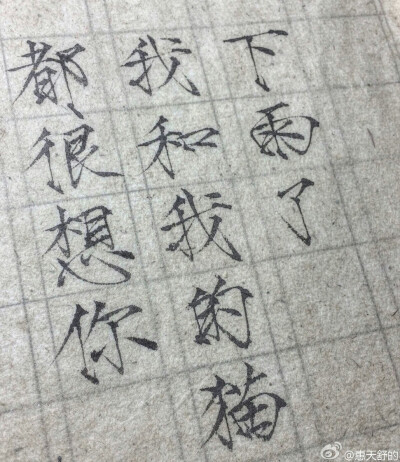 下雨了
我和我的猫
都很想你
@惠天舒的